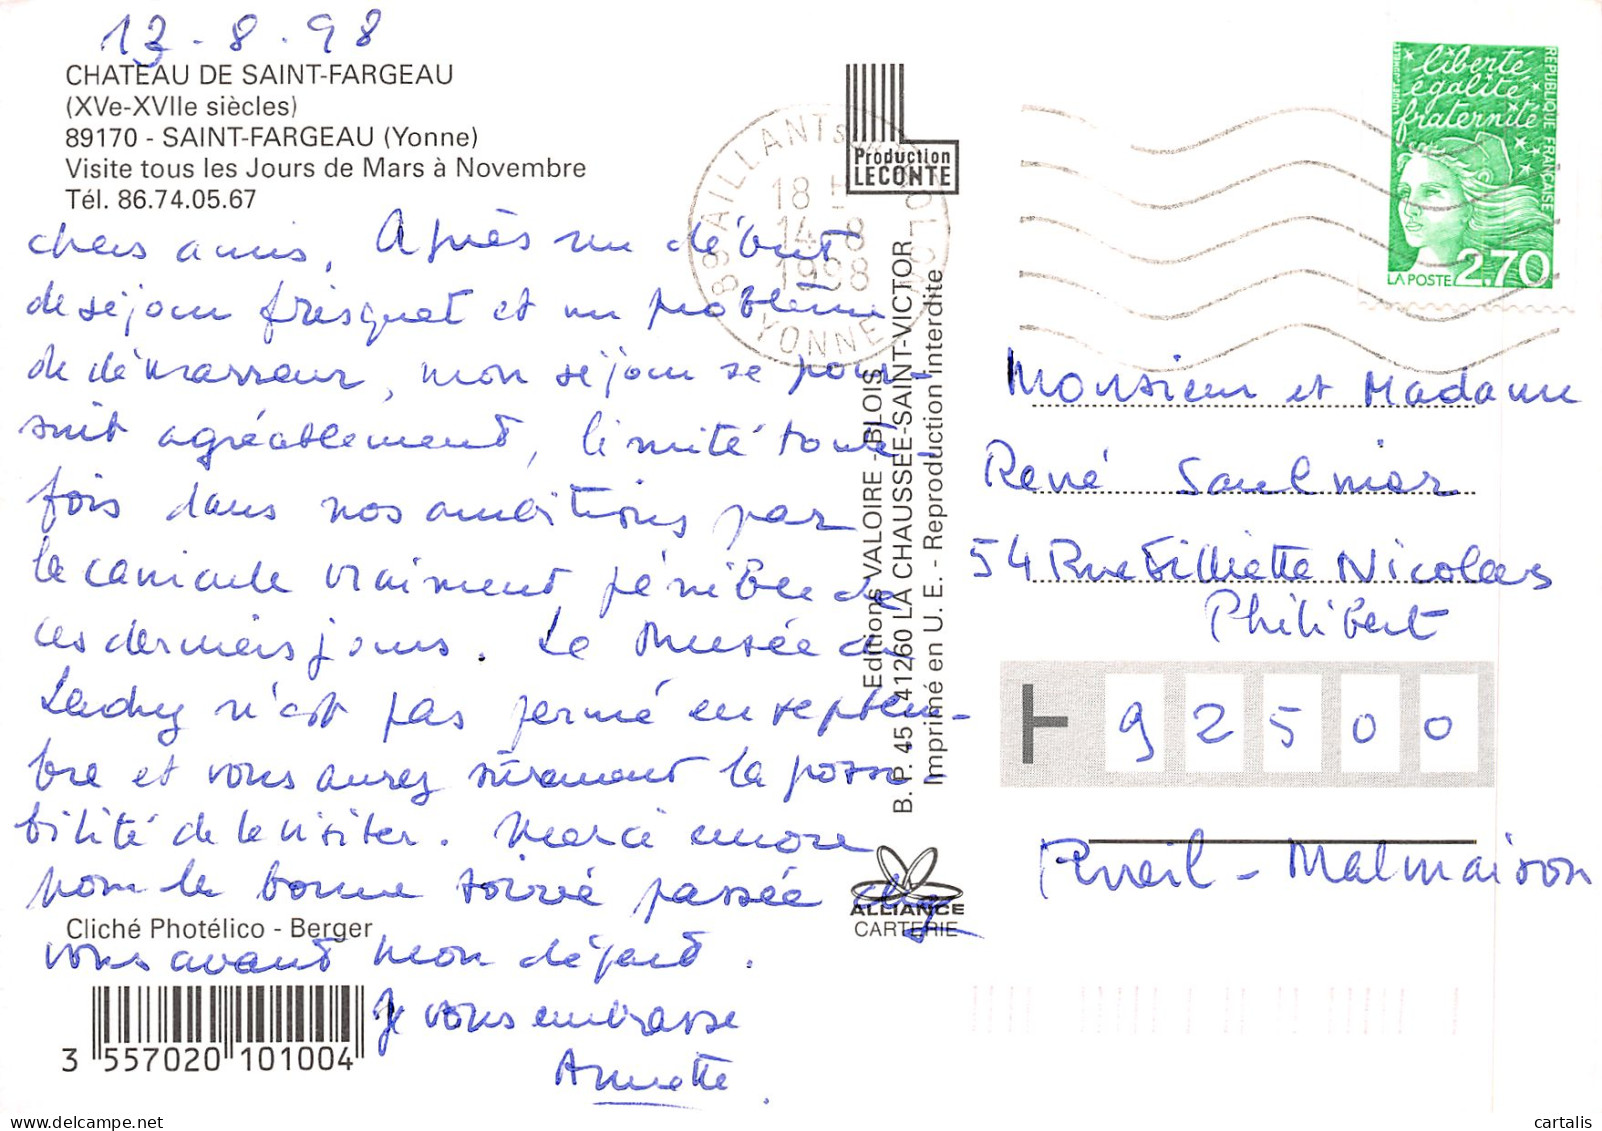 13 - 8 - 98
CHATEAU DE SAINT-FARGEAU
(XVe-XVIIe siècles)
89170 - SAINT-FARGEAU (Yonne)
Visite tous les Jours de Mars à Novembre
Tél. 86.74.05.67
chers amis, Après un début
de séjour frisquet et un problème
de démarreur, mon séjour se pour-
suit agréablement, limité toute-
fois dans nos ambitions par
la canicule vraiment pénible de
ces derniers jours. Le Musée du
Laduz n'est pas fermé en septem-
bre et vous aurez sûrement la possi-
bilité de le visiter. Merci encore
pour la bonne soirée passée chez
vous avant mon départ.
Je vous embrasse
Annette.
Cliché Photélico - Berger
3 557020 101004
Production
LECONTE
89 AILLANT SUR THOLON
18 H
14-8
1998
YONNE
Editions VALOIRE - BLOIS
B. P. 45 41260 LA CHAUSSEE-SAINT-VICTOR
Imprimé en U. E. - Reproduction interdite
ALLIANCE
CARTERIE
liberté
égalité
fraternité
REPUBLIQUE FRANÇAISE
LUQUET-JUMELET
LA POSTE 2,70
Monsieur et Madame
René Saulnier
54 Rue Filliette Nicolas
Philibert
92500
Rueil-Malmaison
cartalis
delcampe.net